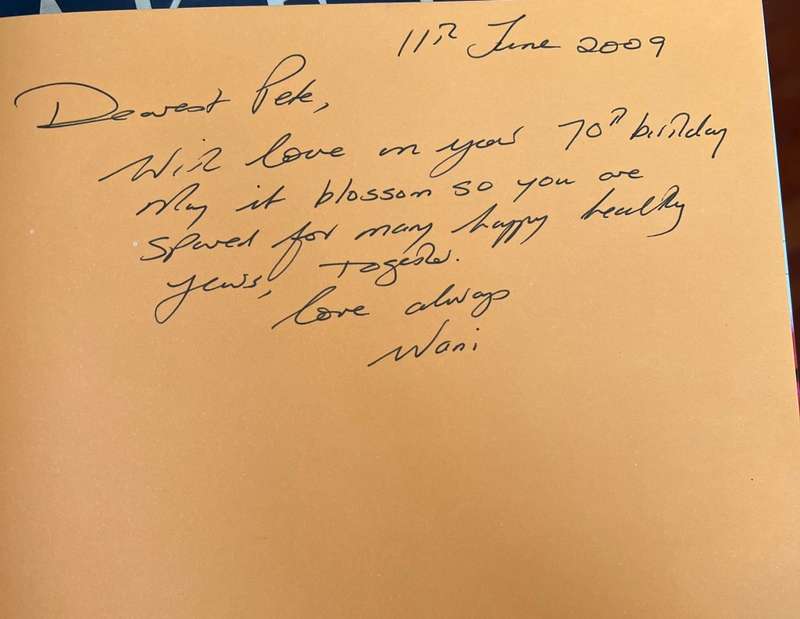 11th June 2009
Dearest Pete,
With love on your 70th birthday
May it blossom so you are
spared for many happy healthy
years, together.
love always
Wani